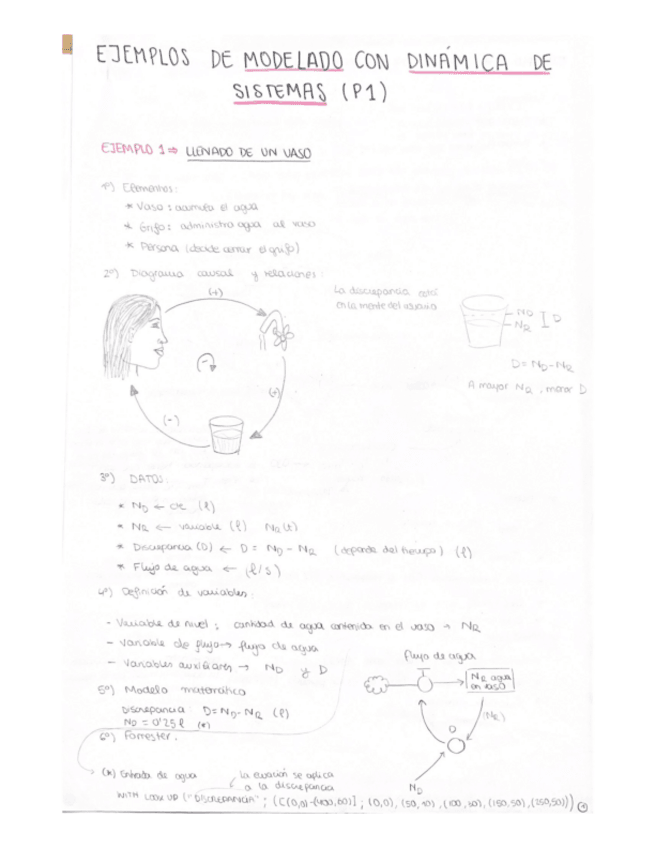 EJEMPLOS DE MODELADO CON DINÁMICA DE
SISTEMAS (P1)
EJEMPLO 1 ⇒ LLENADO DE UN VASO
1º) Elementos:
* Vaso: acumula el agua
* Grifo: administra agua al vaso
* Persona (decide cerrar el grifo)
2º) Diagrama causal y relaciones:
(+)
La discrepancia está
en la mente del usuario
ND
NR
D
D = ND - NR
A mayor NR, menor D
(+)
(-)
3º) DATOS:
* ND ← cte (l)
* NR ← variable (l) NR(t)
* Discrepancia (D) ← D = ND - NR (depende del tiempo) (l)
* Flujo de agua ← (l/s)
4º) Definición de variables:
- Variable de nivel: cantidad de agua contenida en el vaso → NR
- Variable de flujo → flujo de agua
- Variables auxiliares → ND y D
flujo de agua
NR agua
en vaso
(NR)
D
ND
5º) Modelo matemático
Discrepancia: D = ND - NR (l)
ND = 0'25 l (*)
6º) Forrester.
(*) Entrada de agua
La ecuación se aplica
a la discrepancia
WITH LOOK UP ("DISCREPANCIA"; ([(0,0)-(400,60)]; (0,0), (50,10), (100,20), (150,50), (250,50)))
1